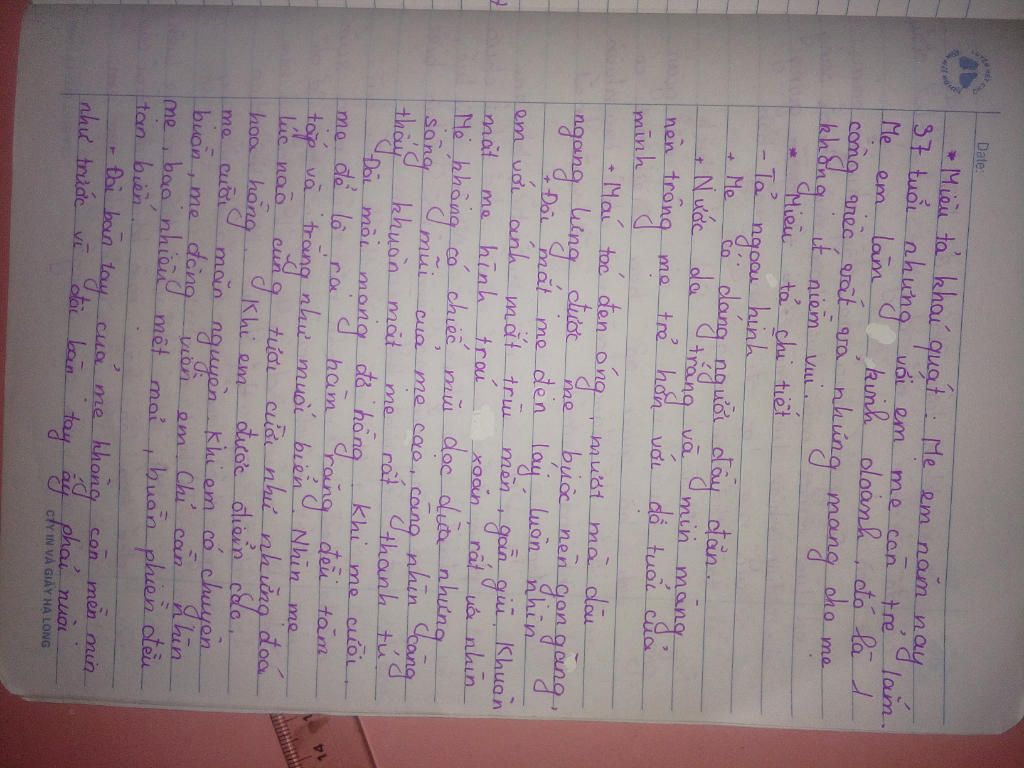 Date:
* Miêu tả khái quát: Mẹ em năm nay
37 tuổi nhưng với em mẹ còn trẻ lắm.
Mẹ em làm kinh doanh, đó là 1
công việc vất vả nhưng mang cho mẹ
không ít niềm vui.
* Miêu tả chi tiết
- Tả ngoại hình
+ Mẹ có dáng người đầy đặn.
+ Nước da trắng và mịn màng
nên trông mẹ trẻ hơn với độ tuổi của
mình
+ Mái tóc đen óng, mượt mà dài
ngang lưng được mẹ buộc nên gọn gàng,
+ Đôi mắt mẹ đen láy luôn nhìn
em với ánh mắt trìu mến, gần gũi. Khuôn
mặt mẹ hình trái xoan, rất ưa nhìn
Mẹ không có chiếc mũi dọc dừa nhưng
sống mũi của mẹ cao, càng nhìn càng
thấy khuôn mặt mẹ rất thanh tú.
Đôi môi mỏng đỏ hồng. Khi mẹ cười,
mẹ để lộ ra hàm răng đều tăm
tắp và trắng như muối biển. Nhìn mẹ
lúc nào cũng tươi cười như những đoá
hoa hồng. Khi em được điểm cao,
mẹ cười mãn nguyện khi em có chuyện
buồn, mẹ động viên em. Chỉ cần nhìn
mẹ, bao nhiêu mệt mỏi, buồn phiền đều
tan biến.
+ Đôi bàn tay của mẹ không còn mềm mịn
như trước vì đôi bàn tay ấy phải nuôi
CTY IN VÀ GIẤY HẠ LONG